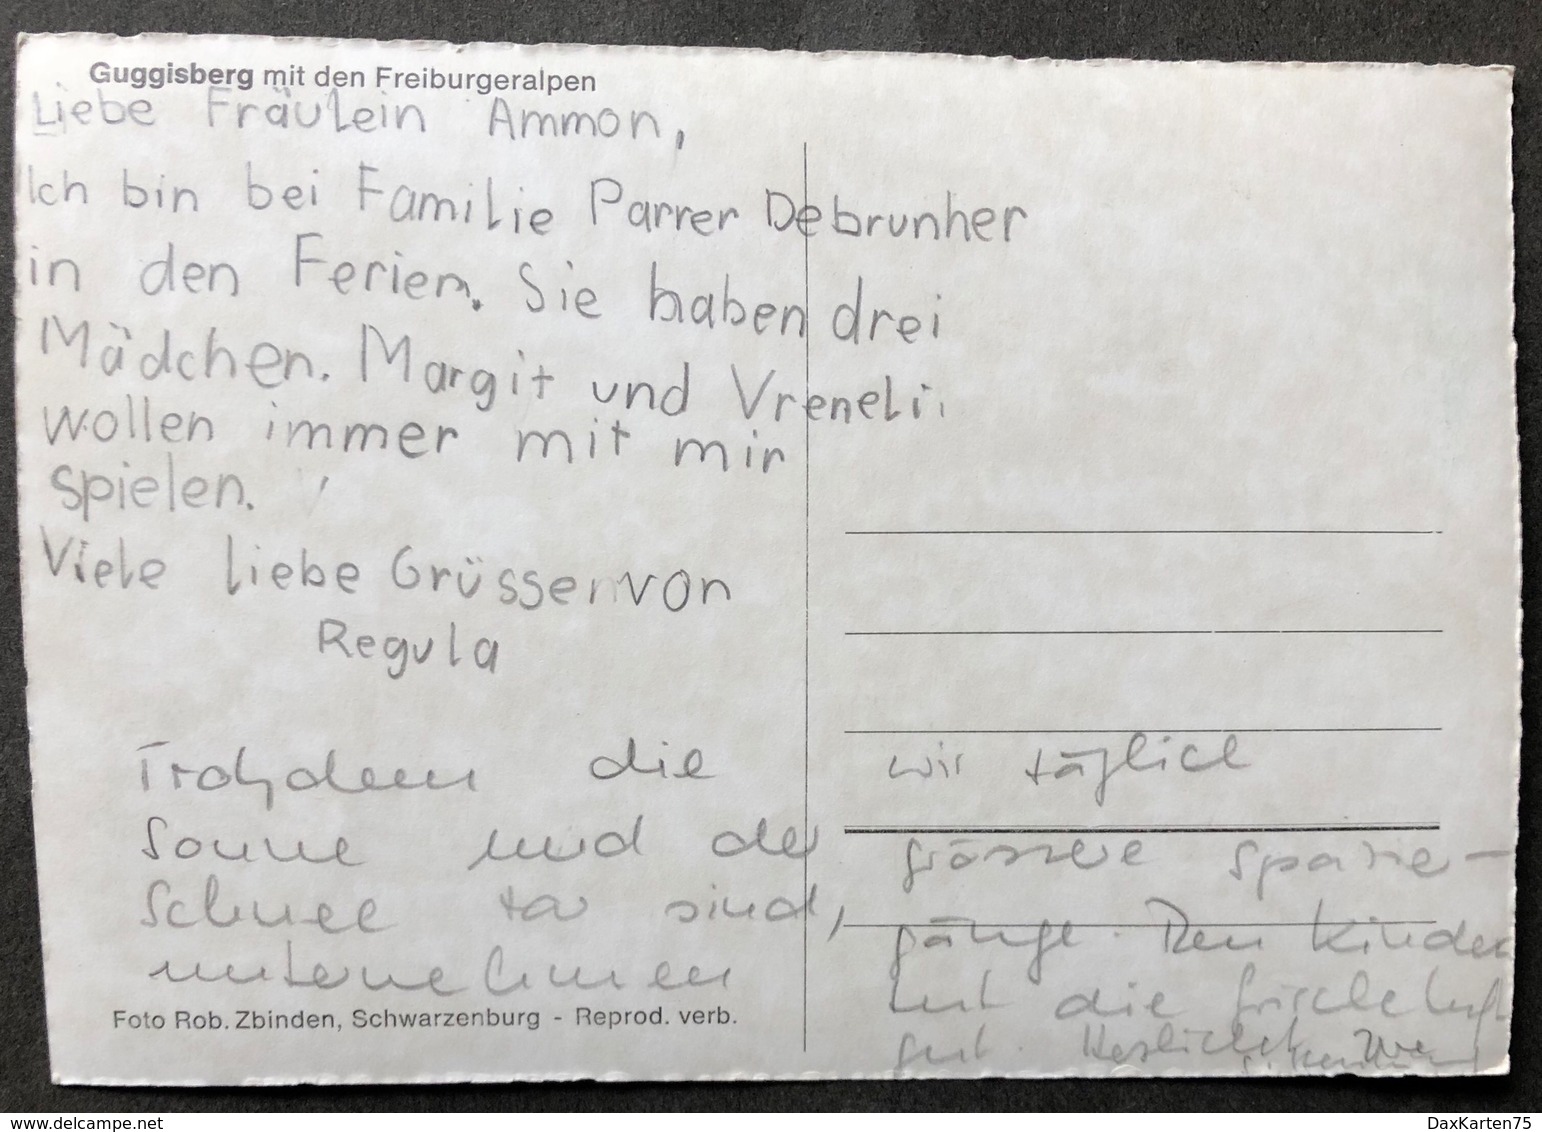 Guggisberg mit den Freiburgeralpen
Liebe Fräulein Ammon,
Ich bin bei Familie Parrer Debrunner
in den Ferien. Sie haben drei
Mädchen. Margit und Vreneli
wollen immer mit mir
spielen.
Viele liebe Grüsse von
Regula
Trotzdem die
Sonne und der
Schnee da sind,
unternehmen
wir täglich
grössere Spazie-
gänge. Den Kinder
tut die frische Luft
gut. Herzlichst
Foto Rob. Zbinden, Schwarzenburg - Reprod. verb.
delcampe.net
DaxKarten75